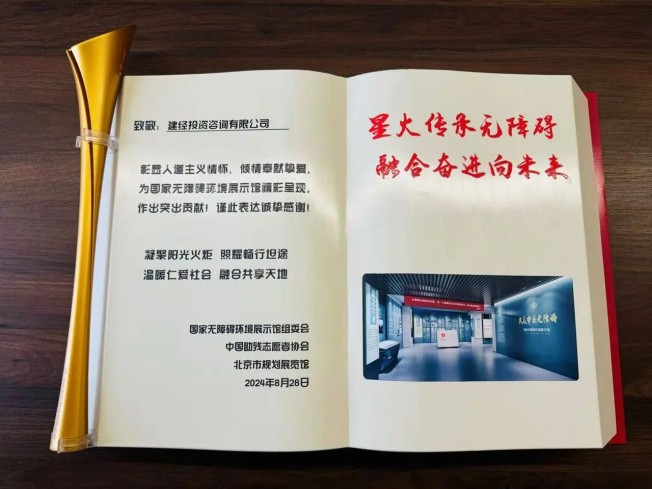 致敬：建经投资咨询有限公司
彰显人道主义情怀，倾情奉献挚爱，
为国家无障碍环境展示馆精彩呈现，
作出突出贡献！谨此表达诚挚感谢！
凝聚阳光火炬 照耀畅行坦途
温暖仁爱社会 融合共享天地
国家无障碍环境展示馆组委会
中国助残志愿者协会
北京市规划展览馆
2024年8月28日
星火传承无障碍
融合奋进向未来